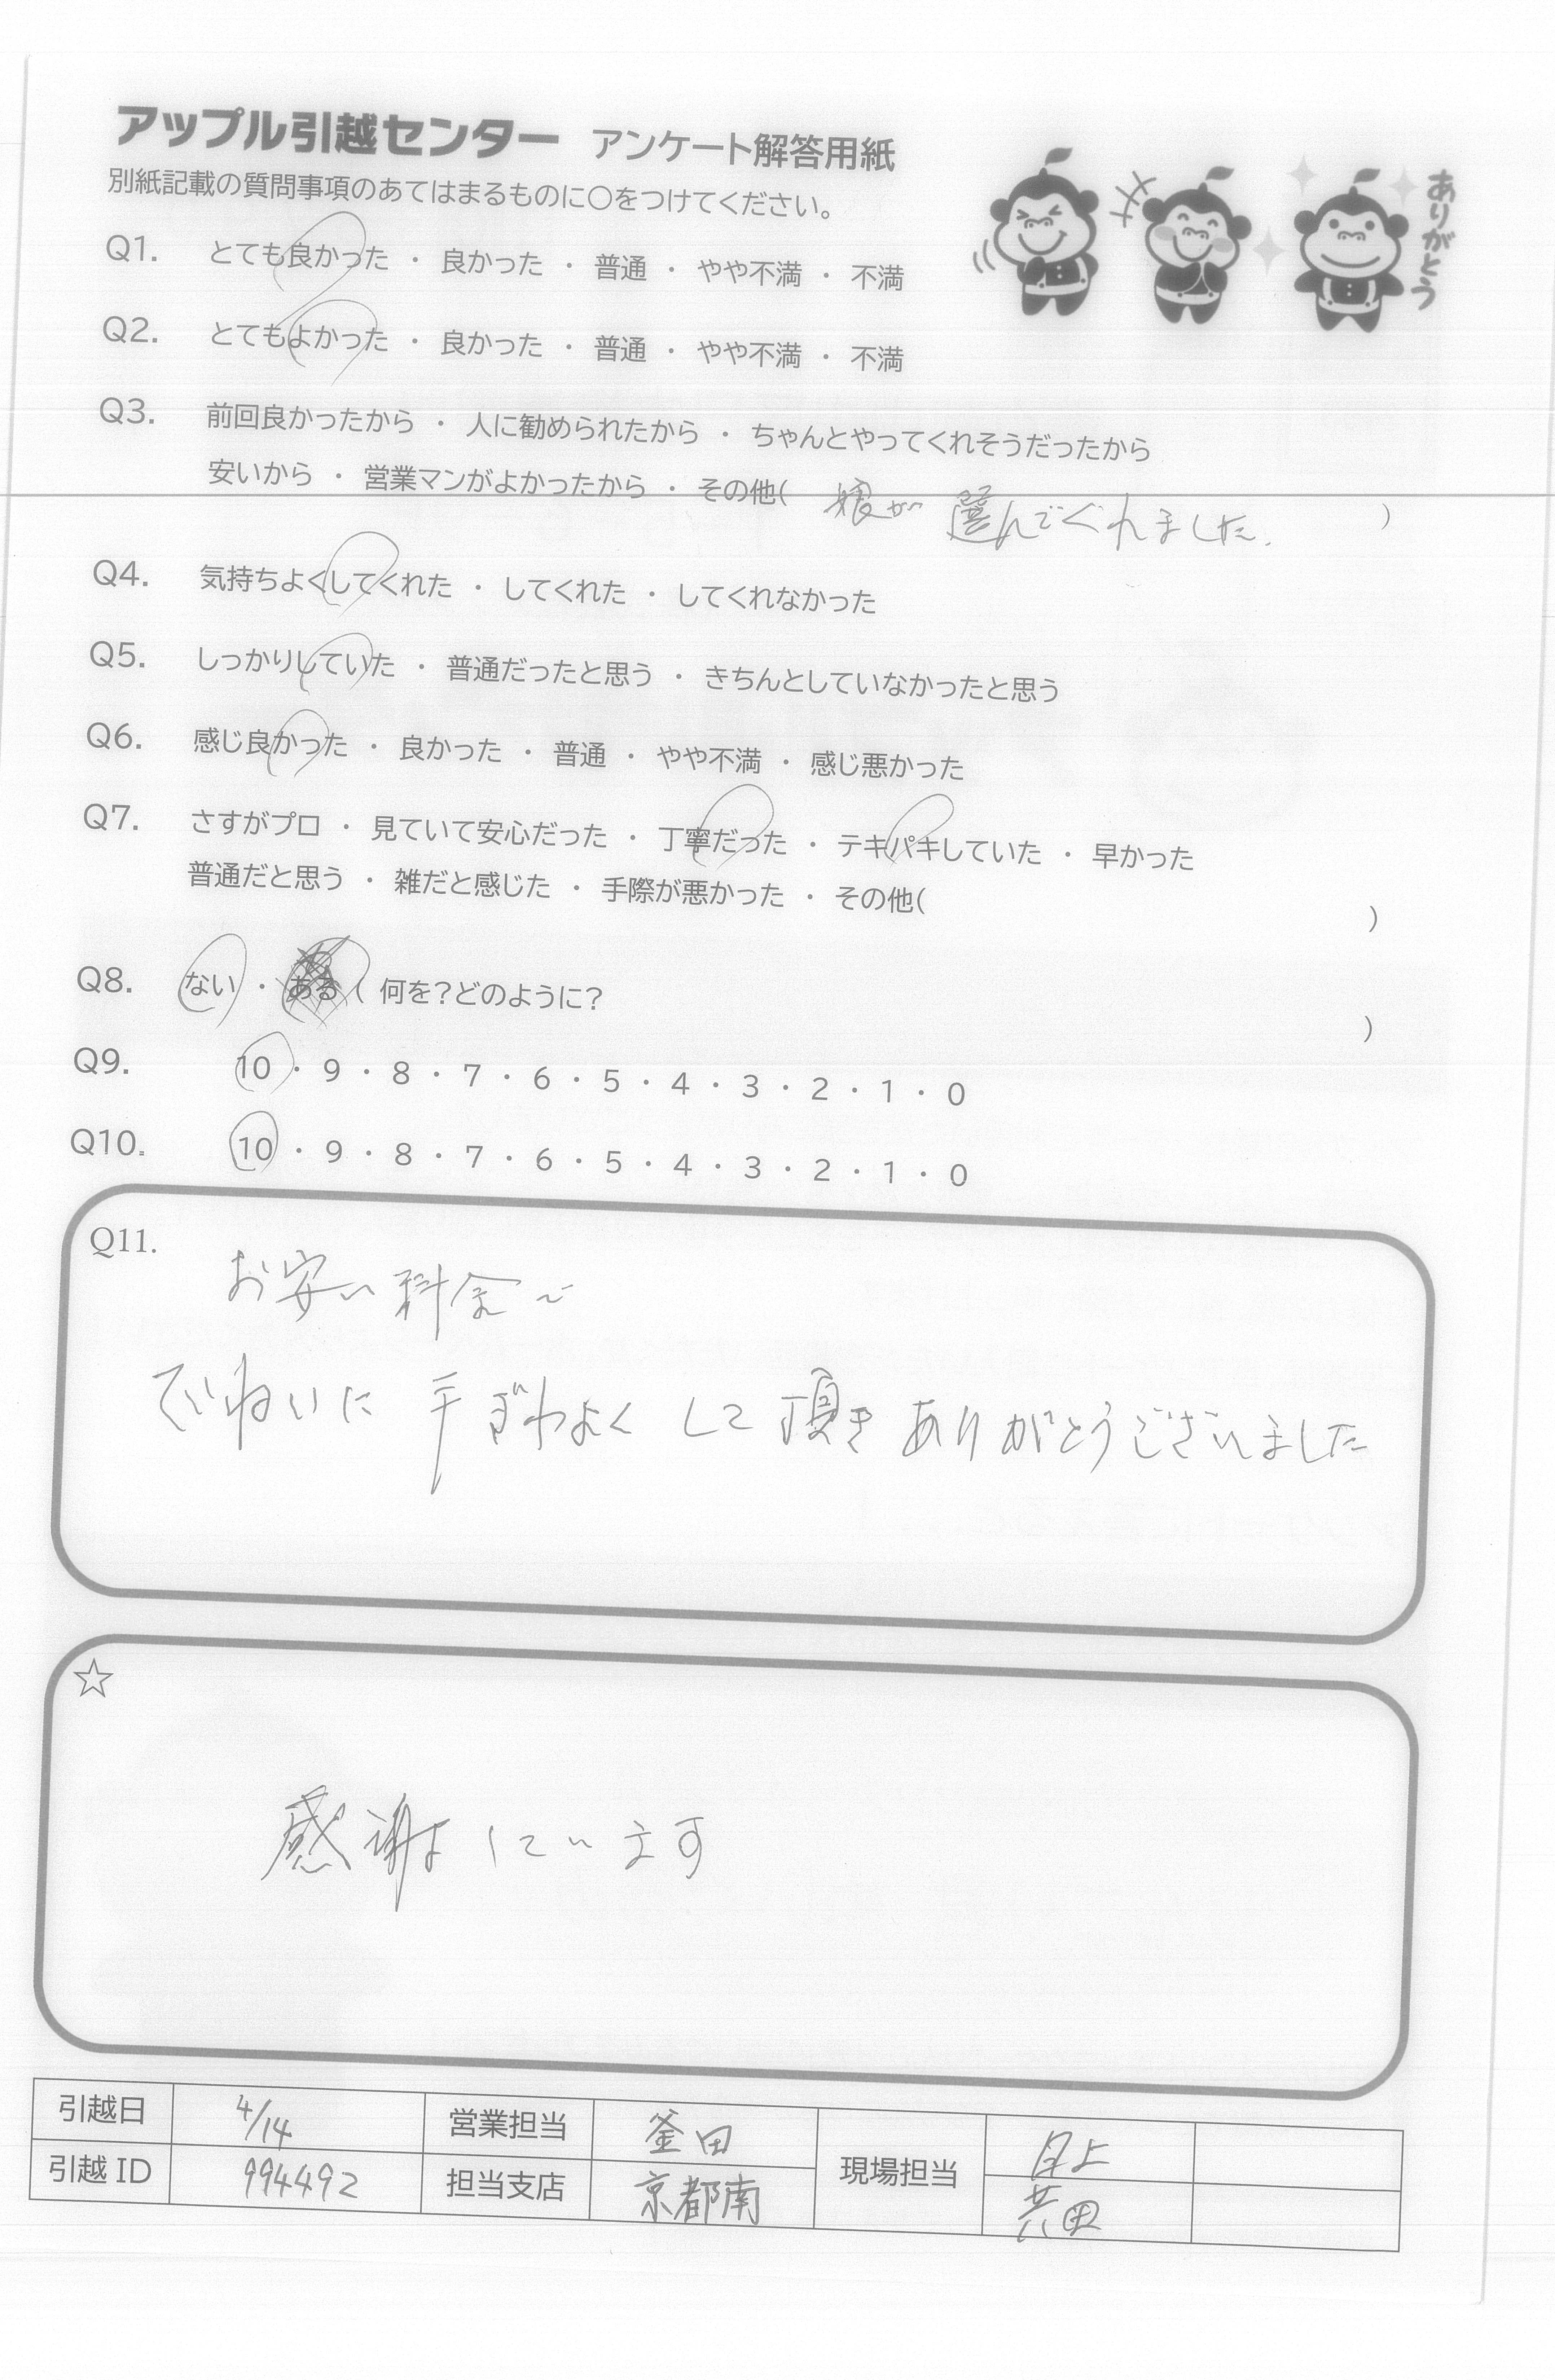 アップル引越センター アンケート解答用紙
別紙記載の質問事項のあてはまるものに○をつけてください。
ありがとう
Q1. とても良かった ・ 良かった ・ 普通 ・ やや不満 ・ 不満
Q2. とてもよかった ・ 良かった ・ 普通 ・ やや不満 ・ 不満
Q3. 前回良かったから ・ 人に勧められたから ・ ちゃんとやってくれそうだったから
安いから ・ 営業マンがよかったから ・ その他( 娘が 選んでくれました. )
Q4. 気持ちよくしてくれた ・ してくれた ・ してくれなかった
Q5. しっかりしていた ・ 普通だったと思う ・ きちんとしていなかったと思う
Q6. 感じ良かった ・ 良かった ・ 普通 ・ やや不満 ・ 感じ悪かった
Q7. さすがプロ ・ 見ていて安心だった ・ 丁寧だった ・ テキパキしていた ・ 早かった
普通だと思う ・ 雑だと感じた ・ 手際が悪かった ・ その他( )
Q8. ない ・ ある ( 何を?どのように? )
Q9. 10 ・ 9 ・ 8 ・ 7 ・ 6 ・ 5 ・ 4 ・ 3 ・ 2 ・ 1 ・ 0
Q10. 10 ・ 9 ・ 8 ・ 7 ・ 6 ・ 5 ・ 4 ・ 3 ・ 2 ・ 1 ・ 0
Q11.
お安い料金で
ていねいに 手ぎわよく して頂き ありがとうございました
☆
感謝しています
引越日 4/14 営業担当 釜田 現場担当
引越ID 994492 担当支店 京都南